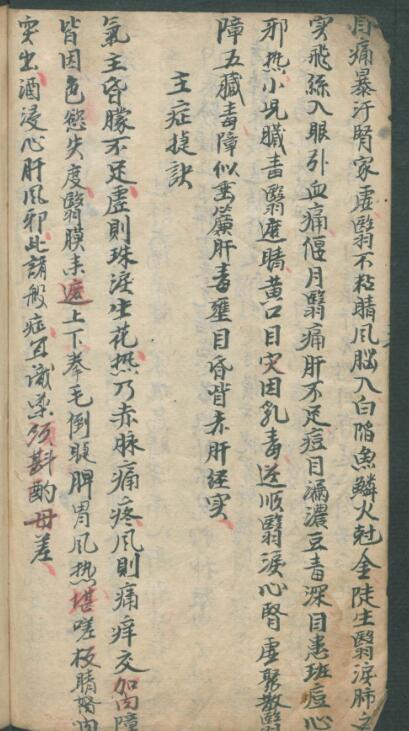 目痛暴汗腎家虛翳不粘睛風腦入白陷魚鱗火尅金陡生翳淚肺之
实飛絲入眼引血痛偃月翳痛肝不足痘目漏濃豆毒深目患班痘心
邪热小児臓毒翳遮睛黄口目灾因乳毒逆順翳淚心腎虛聚散翳
障五臓毒障似垂簾肝毒壅目昏眥赤肝経实
主症提訣
氣主昏朦不足虛則珠淚生花热乃赤脉痛疼風則痛痒交加内障
皆因色慾失度翳膜未遮上下拳毛倒睫脾胃風热堪嗟板睛努肉
突出酒浸心肝風邪此諸般症宜識染須斟酌毋差